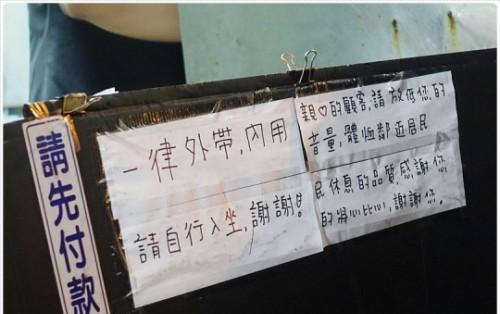 請先付款
一律外帶,內用
請自行入坐,謝謝!
親♡的顧客,請放低您的
音量,體恤鄰近居民
民休息的品質,感謝您
的將心比心,謝謝您。